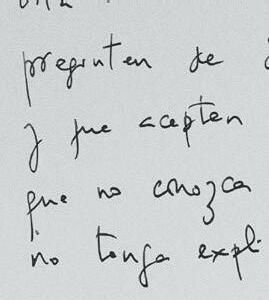 pregunten de
y que acepten
que no conozca
no tenga expli